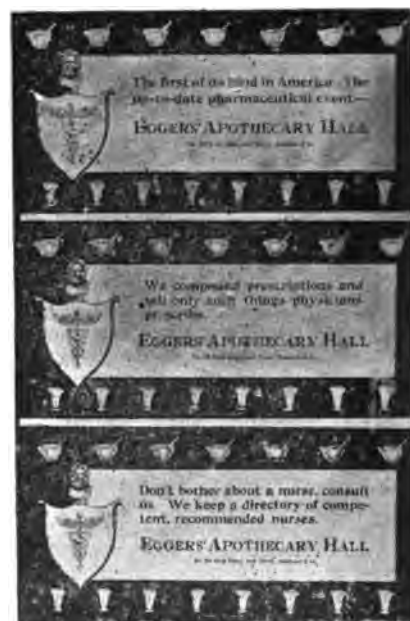 The first of its kind in America. The
up-to-date pharmaceutical event—
EGGERS' APOTHECARY HALL
We compound prescriptions and
sell only such things physicians
prescribe.
EGGERS' APOTHECARY HALL
Don't bother about a nurse, consult
us. We keep a directory of compe-
tent, recommended nurses.
EGGERS' APOTHECARY HALL